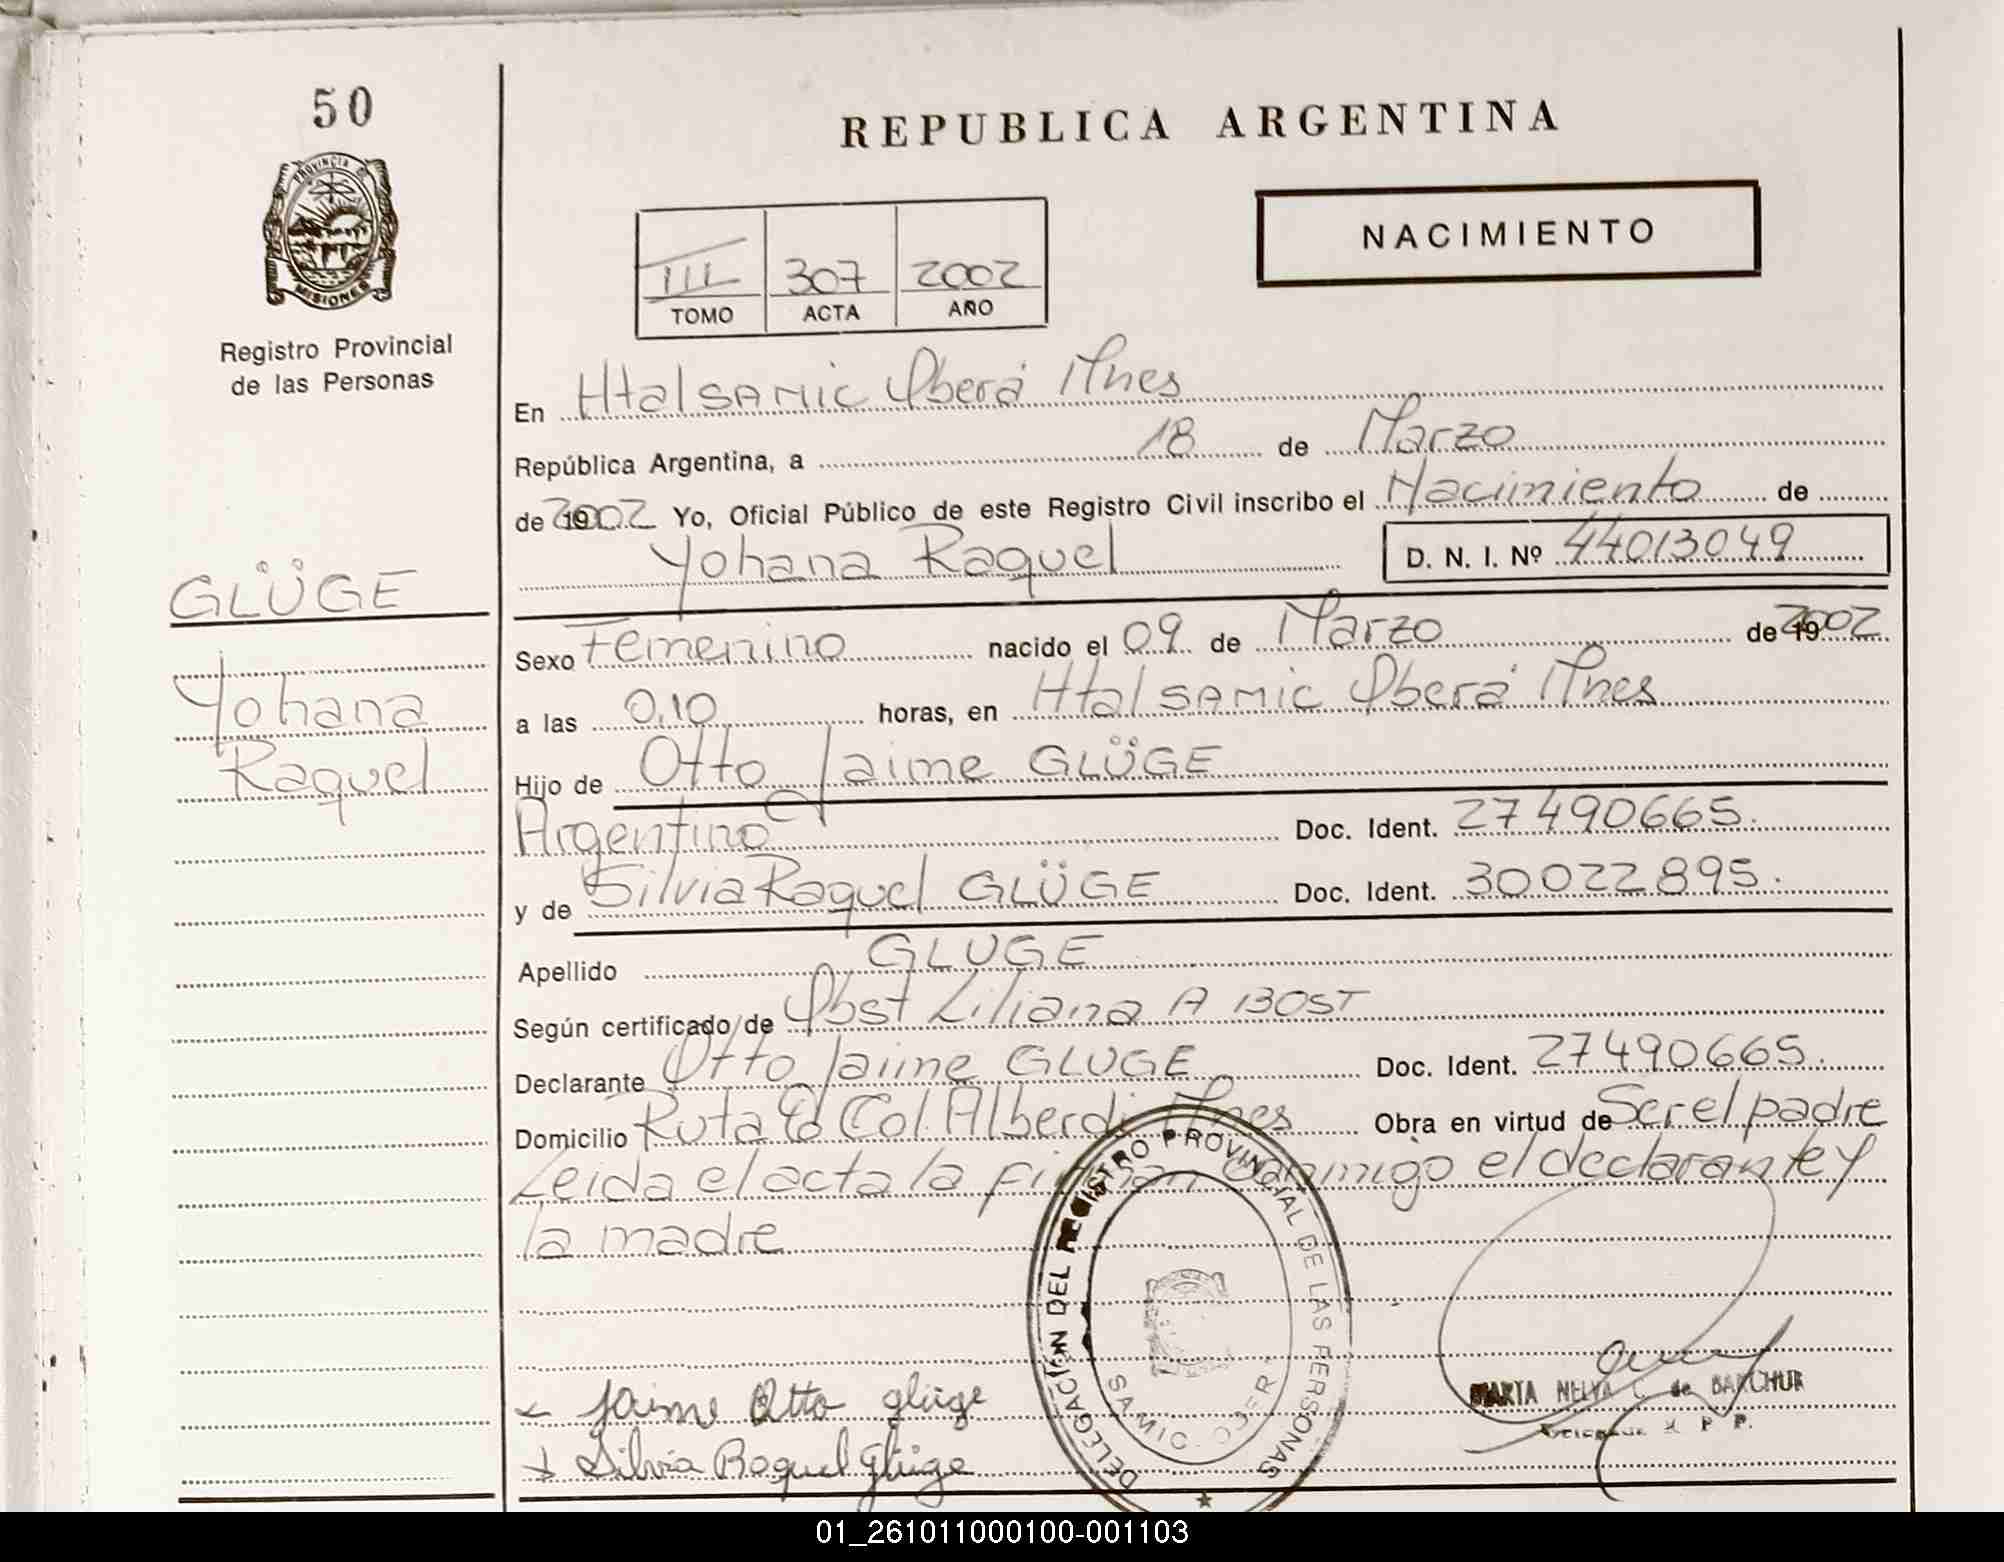 50
PROVINCIA DE
MISIONES
Registro Provincial
de las Personas
GLÜGE
Yohana
Raquel
REPUBLICA ARGENTINA
III 307 2002
TOMO ACTA AÑO
NACIMIENTO
En Htal SAMIC Oberá Mnes
República Argentina, a 18 de Marzo
de 2002 Yo, Oficial Público de este Registro Civil inscribo el Nacimiento de
Yohana Raquel D. N. I. Nº 44013049
Sexo Femenino nacido el 09 de Marzo de 2002.
a las 0,10 horas, en Htal SAMIC Oberá Mnes
Hijo de Otto Jaime GLÜGE
Argentino Doc. Ident. 27490665.
y de Silvia Raquel GLÜGE Doc. Ident. 30022895.
Apellido GLUGE
Según certificado de Obst Liliana A BOST
Declarante Otto Jaime GLUGE Doc. Ident. 27490665.
Domicilio Ruta Col. Alberdi Mnes Obra en virtud de Ser el padre
Leida el acta la firman conmigo el declarante y
la madre
DELEGACIÓN DEL REGISTRO PROVINCIAL DE LAS PERSONAS
SAMIC
Jaime Otto glüge
Silvia Raquel glüge
MARTA NELVA C. de BARCHUK
01_261011000100-001103